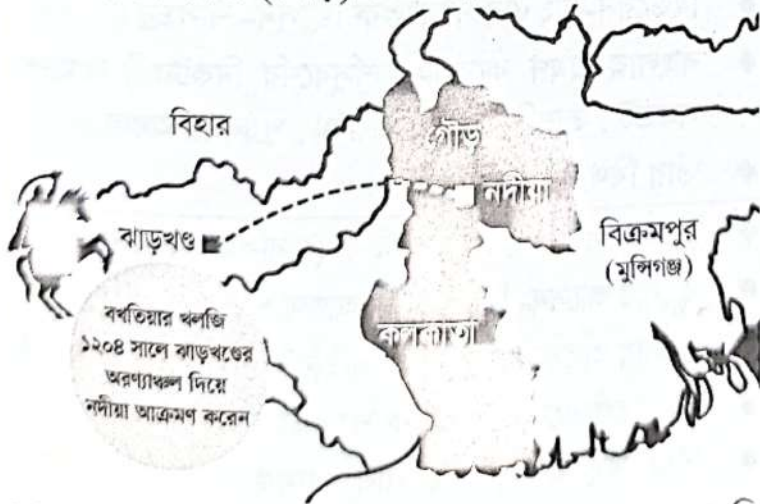 বিহার
গৌড়
নদীয়া
ঝাড়খণ্ড
বিক্রমপুর
(মুন্সিগঞ্জ)
কলকাতা
বখতিয়ার খলজি
১২০৪ সালে ঝাড়খণ্ডের
অরণ্যাঞ্চল দিয়ে
নদীয়া আক্রমণ করেন